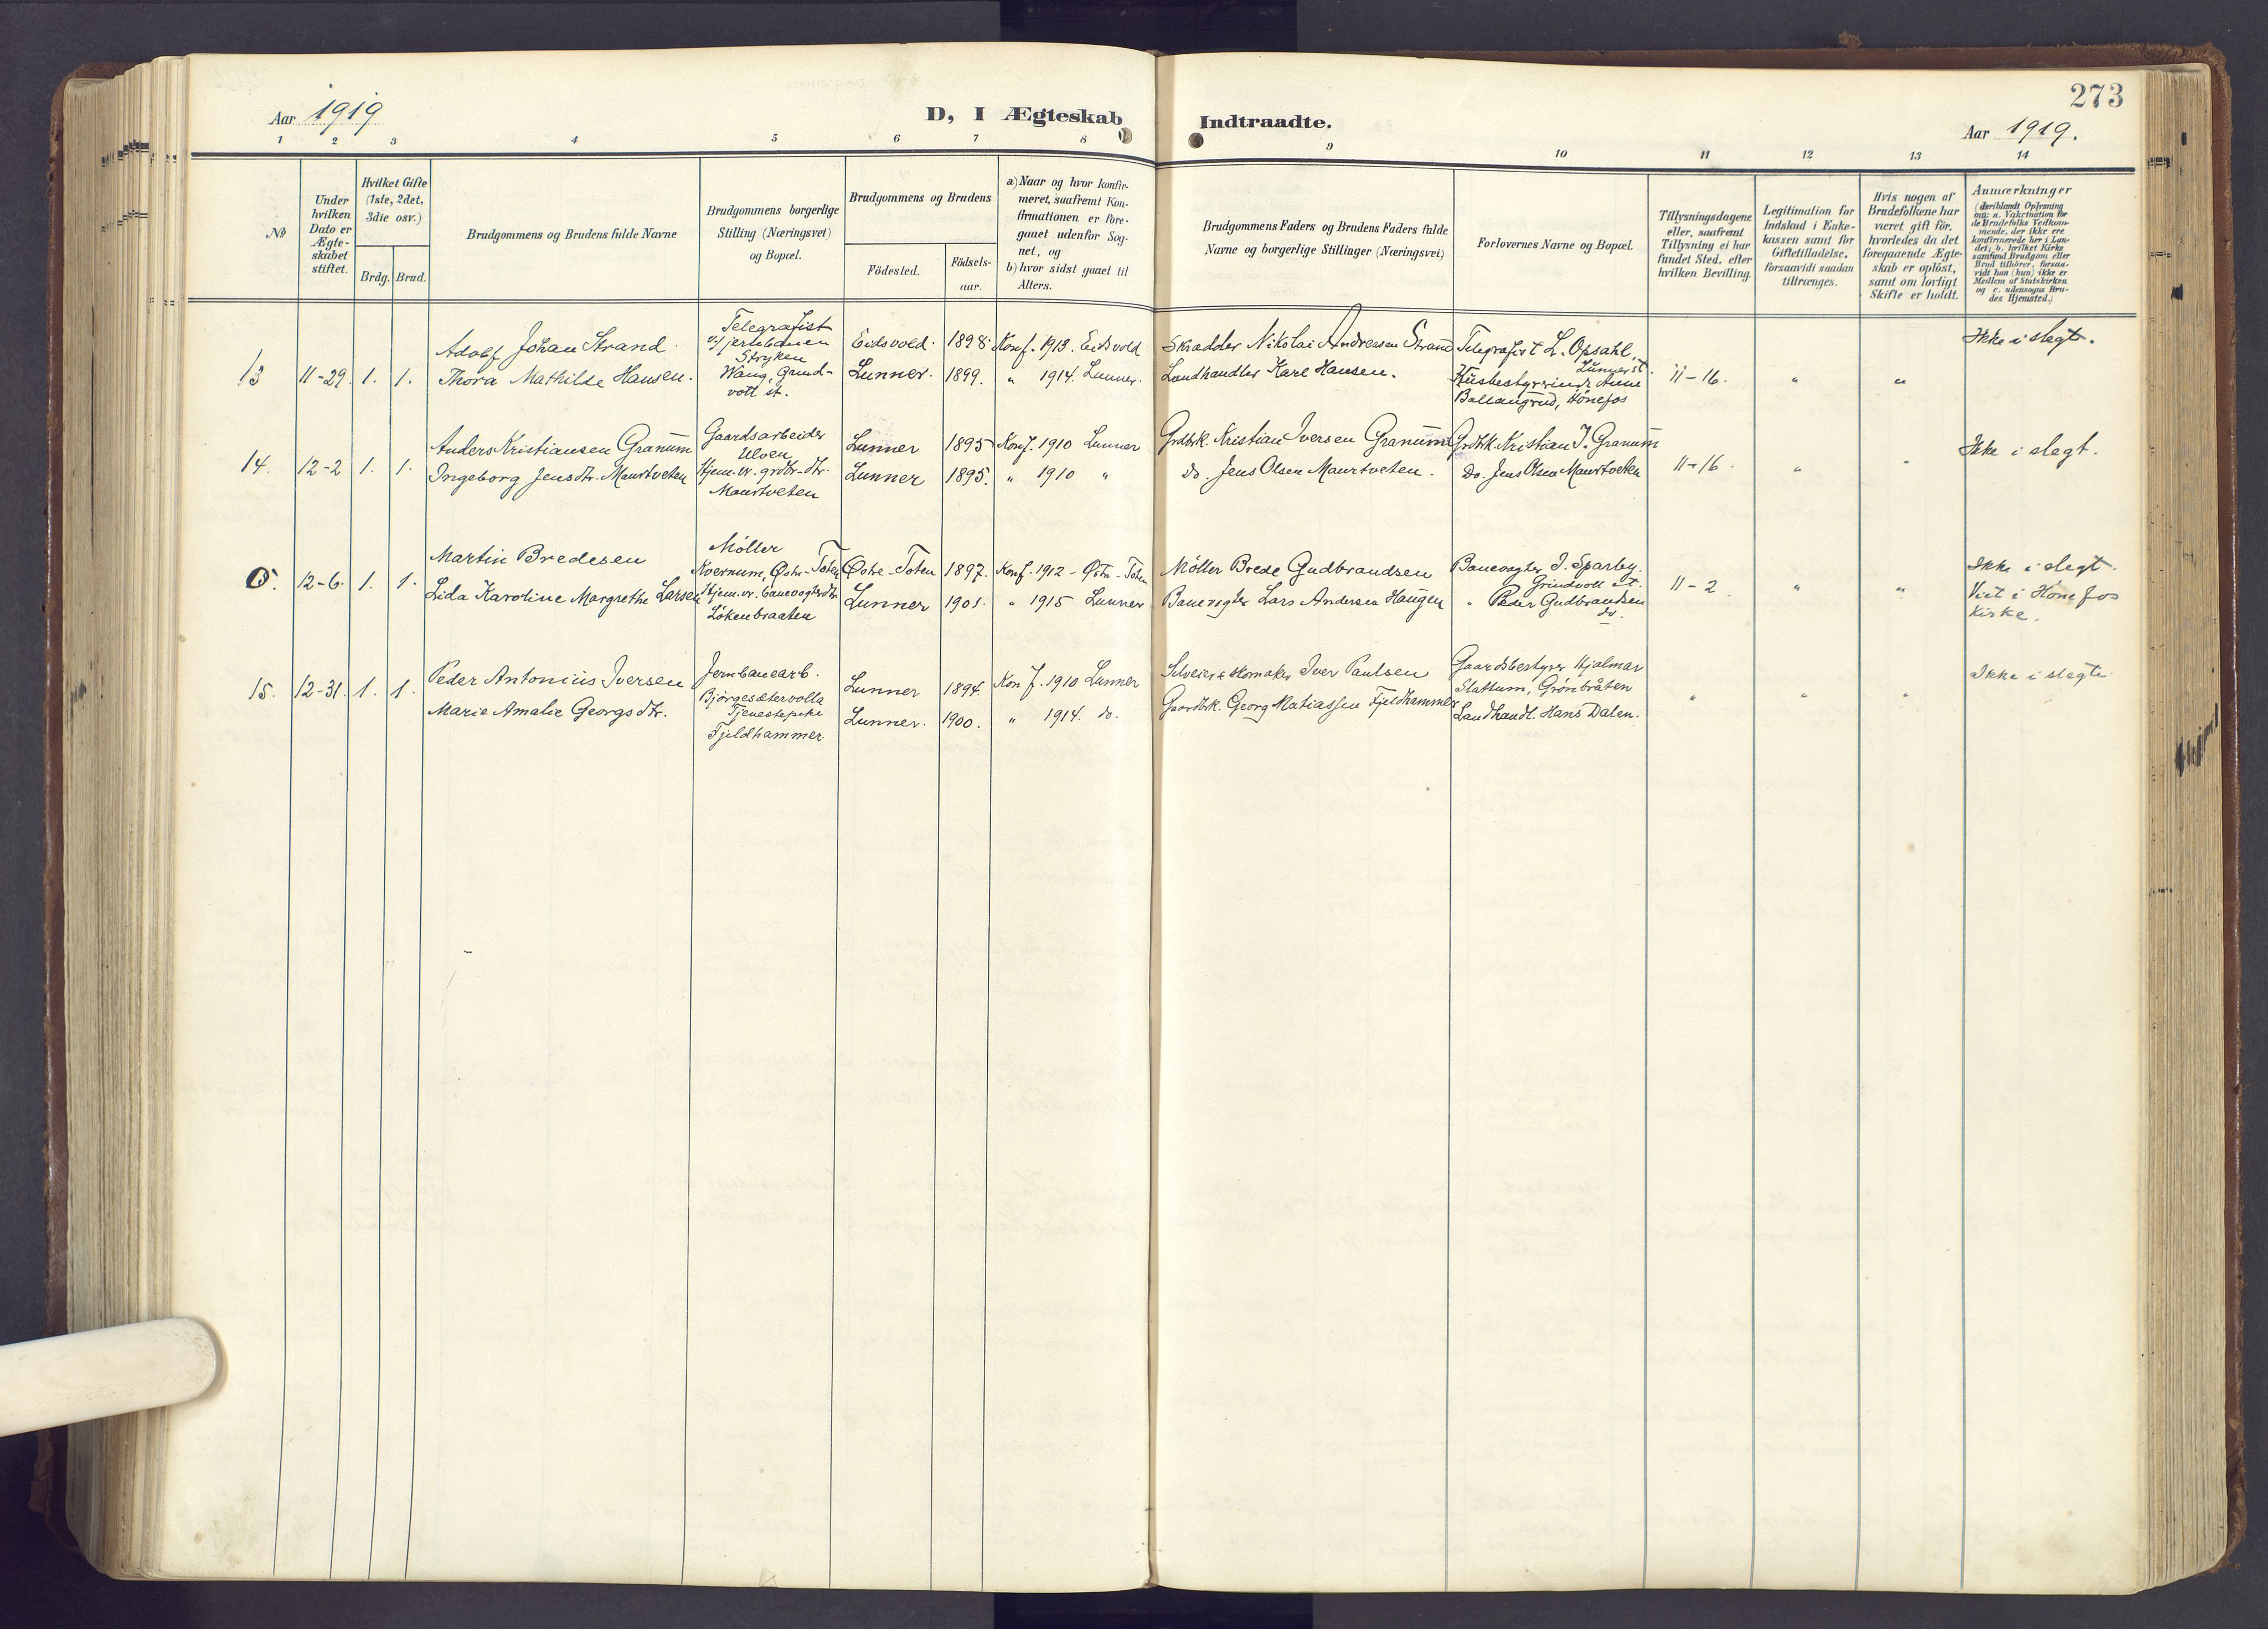 273
Aar 1919
D, I Ægteskab Indtraadte.
Aar 1919.
1 2 3 4 5 6 7 8 9 10 11 12 13 14
No
Under hvilken Dato er Ægteskabet stiftet.
Hvilket Gifte (1ste, 2det, 3die osv.)
Brdg. Brud.
Brudgommens og Brudens fulde Navne
Brudgommens borgerlige Stilling (Næringsvei) og Bopæl.
Brudgommens og Brudens
Födested.
Födsels-aar.
a) Naar og hvor konfirmeret, saafremt Konfirmationen er foregaaet udenfor Sognet, og
b) hvor sidst gaaet til Alters.
Brudgommens Faders og Brudens Faders fulde Navne og borgerlige Stillinger (Næringsvei)
Forlovernes Navne og Bopæl.
Tillysningsdagene eller, saafremt Tillysning ei har fundet Sted, efter hvilken Bevilling.
Legitimation for Indskud i Enkekassen samt for Giftetilladelse, forsaavidt saadan tiltrænges.
Hvis nogen af Brudefolkene har været gift för, hvorledes da det foregaaende Ægteskab er oplöst, samt om lovligt Skifte er holdt.
Anmærkninger
(deriblandt Oplysning om: a. Vakcination for de Brudefolks Vedkommende, der ikke ere konfirmerede her i Landet; b. hvilket Kirkesamfund Brudgom eller Brud tilhörer, forsaavidt han (hun) ikke er Medlem af Statskirken og c. udensogns Brudes Hjemsted.)
13 11-29. 1. 1.
Adolf Johan Strand.
Thora Mathilde Hansen.
Telegrafist
v/ jernbanen
Stryken
Wang, Grind-
voll st.
Eidsvold. 1898. Konf. 1913. Eidsvold
Lunner. 1899. " 1914. Lunner.
Skrædder Nikolai Andreasen Strand
Landhandler Karl Hansen.
Telegrafist L. Opsahl,
Lunner st.
Husbestyrerinde Anne
Ballangrud, Hönefos
11-16. " "
Ikke i slegt.
14. 12-2 1. 1.
Anders Kristiansen Granum
Ingeborg Jensdtr. Maurtveten
Gaardsarbeider
Ulven
Hjem.v. grdbr.dtr.
Maurtveten
Lunner 1895 Konf. 1910 Lunner
Lunner 1895. " 1910 "
Grdbrk. Kristian Iversen Granum
Do. Jens Olsen Maurtveten.
Grdbrk. Kristian I. Granum
Do. Jens Olsen Maurtveten
11-16. " "
Ikke i slegt.
0. 12-6. 1. 1.
Martin Bredesen
Lida Karoline Margrethe Larsen
Möller
Kvernum, Östre-Toten
Hjem.v. banevogterdtr.
Lökenbraaten
Östre-Toten 1897. Konf. 1912 - Östre-Toten
Lunner 1901. " 1915 Lunner
Möller Brede Gudbrandsen
Banevogter Lars Andersen Haugen
Banevogter J. Sparby.
Grindvoll st.
" Peder Gudbrandsen
do.
11-2. " "
Ikke i slegt.
Viet i Hönefos
Kirke.
15. 12-31. 1. 1.
Peder Antonius Iversen
Marie Amalie Georgsdtr.
Jernbanearb.
Björgesætervolla
Tjenestepike
Fjeldhammer
Lunner 1894. Konf. 1910 Lunner
Lunner. 1900. " 1914. do.
Selveier & skomaker Iver Paulsen
Gaardbrk. Georg Matiassen Fjeldhammer
Gaardsbestyrer Hjalmar
Slattum, Grönbråten
Landhandl. Hans Dalen.
" " "
Ikke i slegt.